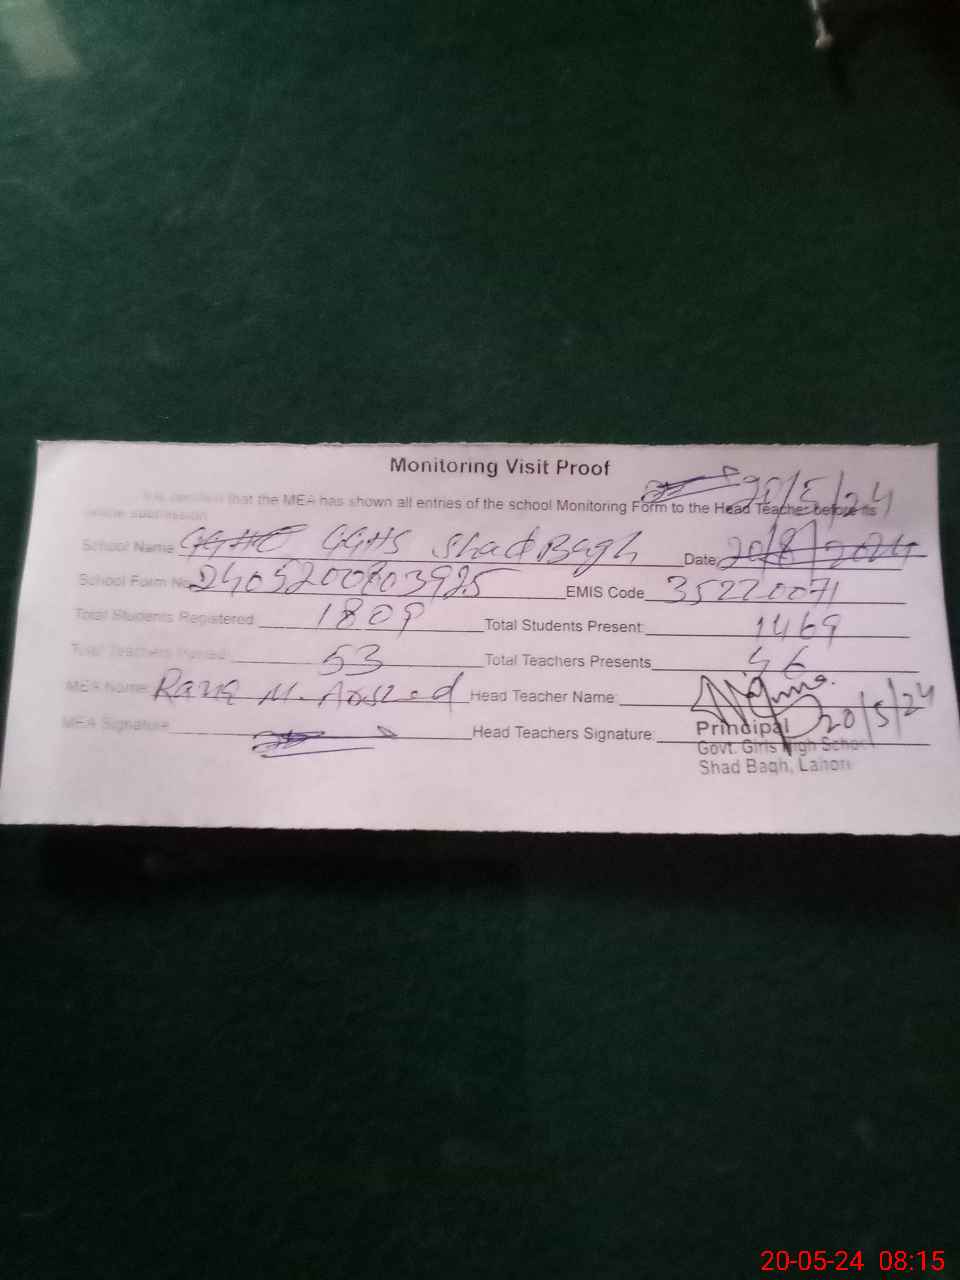 Monitoring Visit Proof
It is certified that the MEA has shown all entries of the school Monitoring Form to the Head Teacher before its
online submission
20/5/24
School Name GGHS Shad Bagh Date 20/8/2024
School Form No D405200803925 EMIS Code 35220071
Total Students Registered: 1809 Total Students Present: 1469
Total Teachers 53 Total Teachers Presents 46
MEA Name: Rana M. Arshad Head Teacher Name:
MEA Signature Head Teachers Signature:
Principal 20/5/24
Govt. Girls High School
Shad Bagh, Lahore
20-05-24 08:15